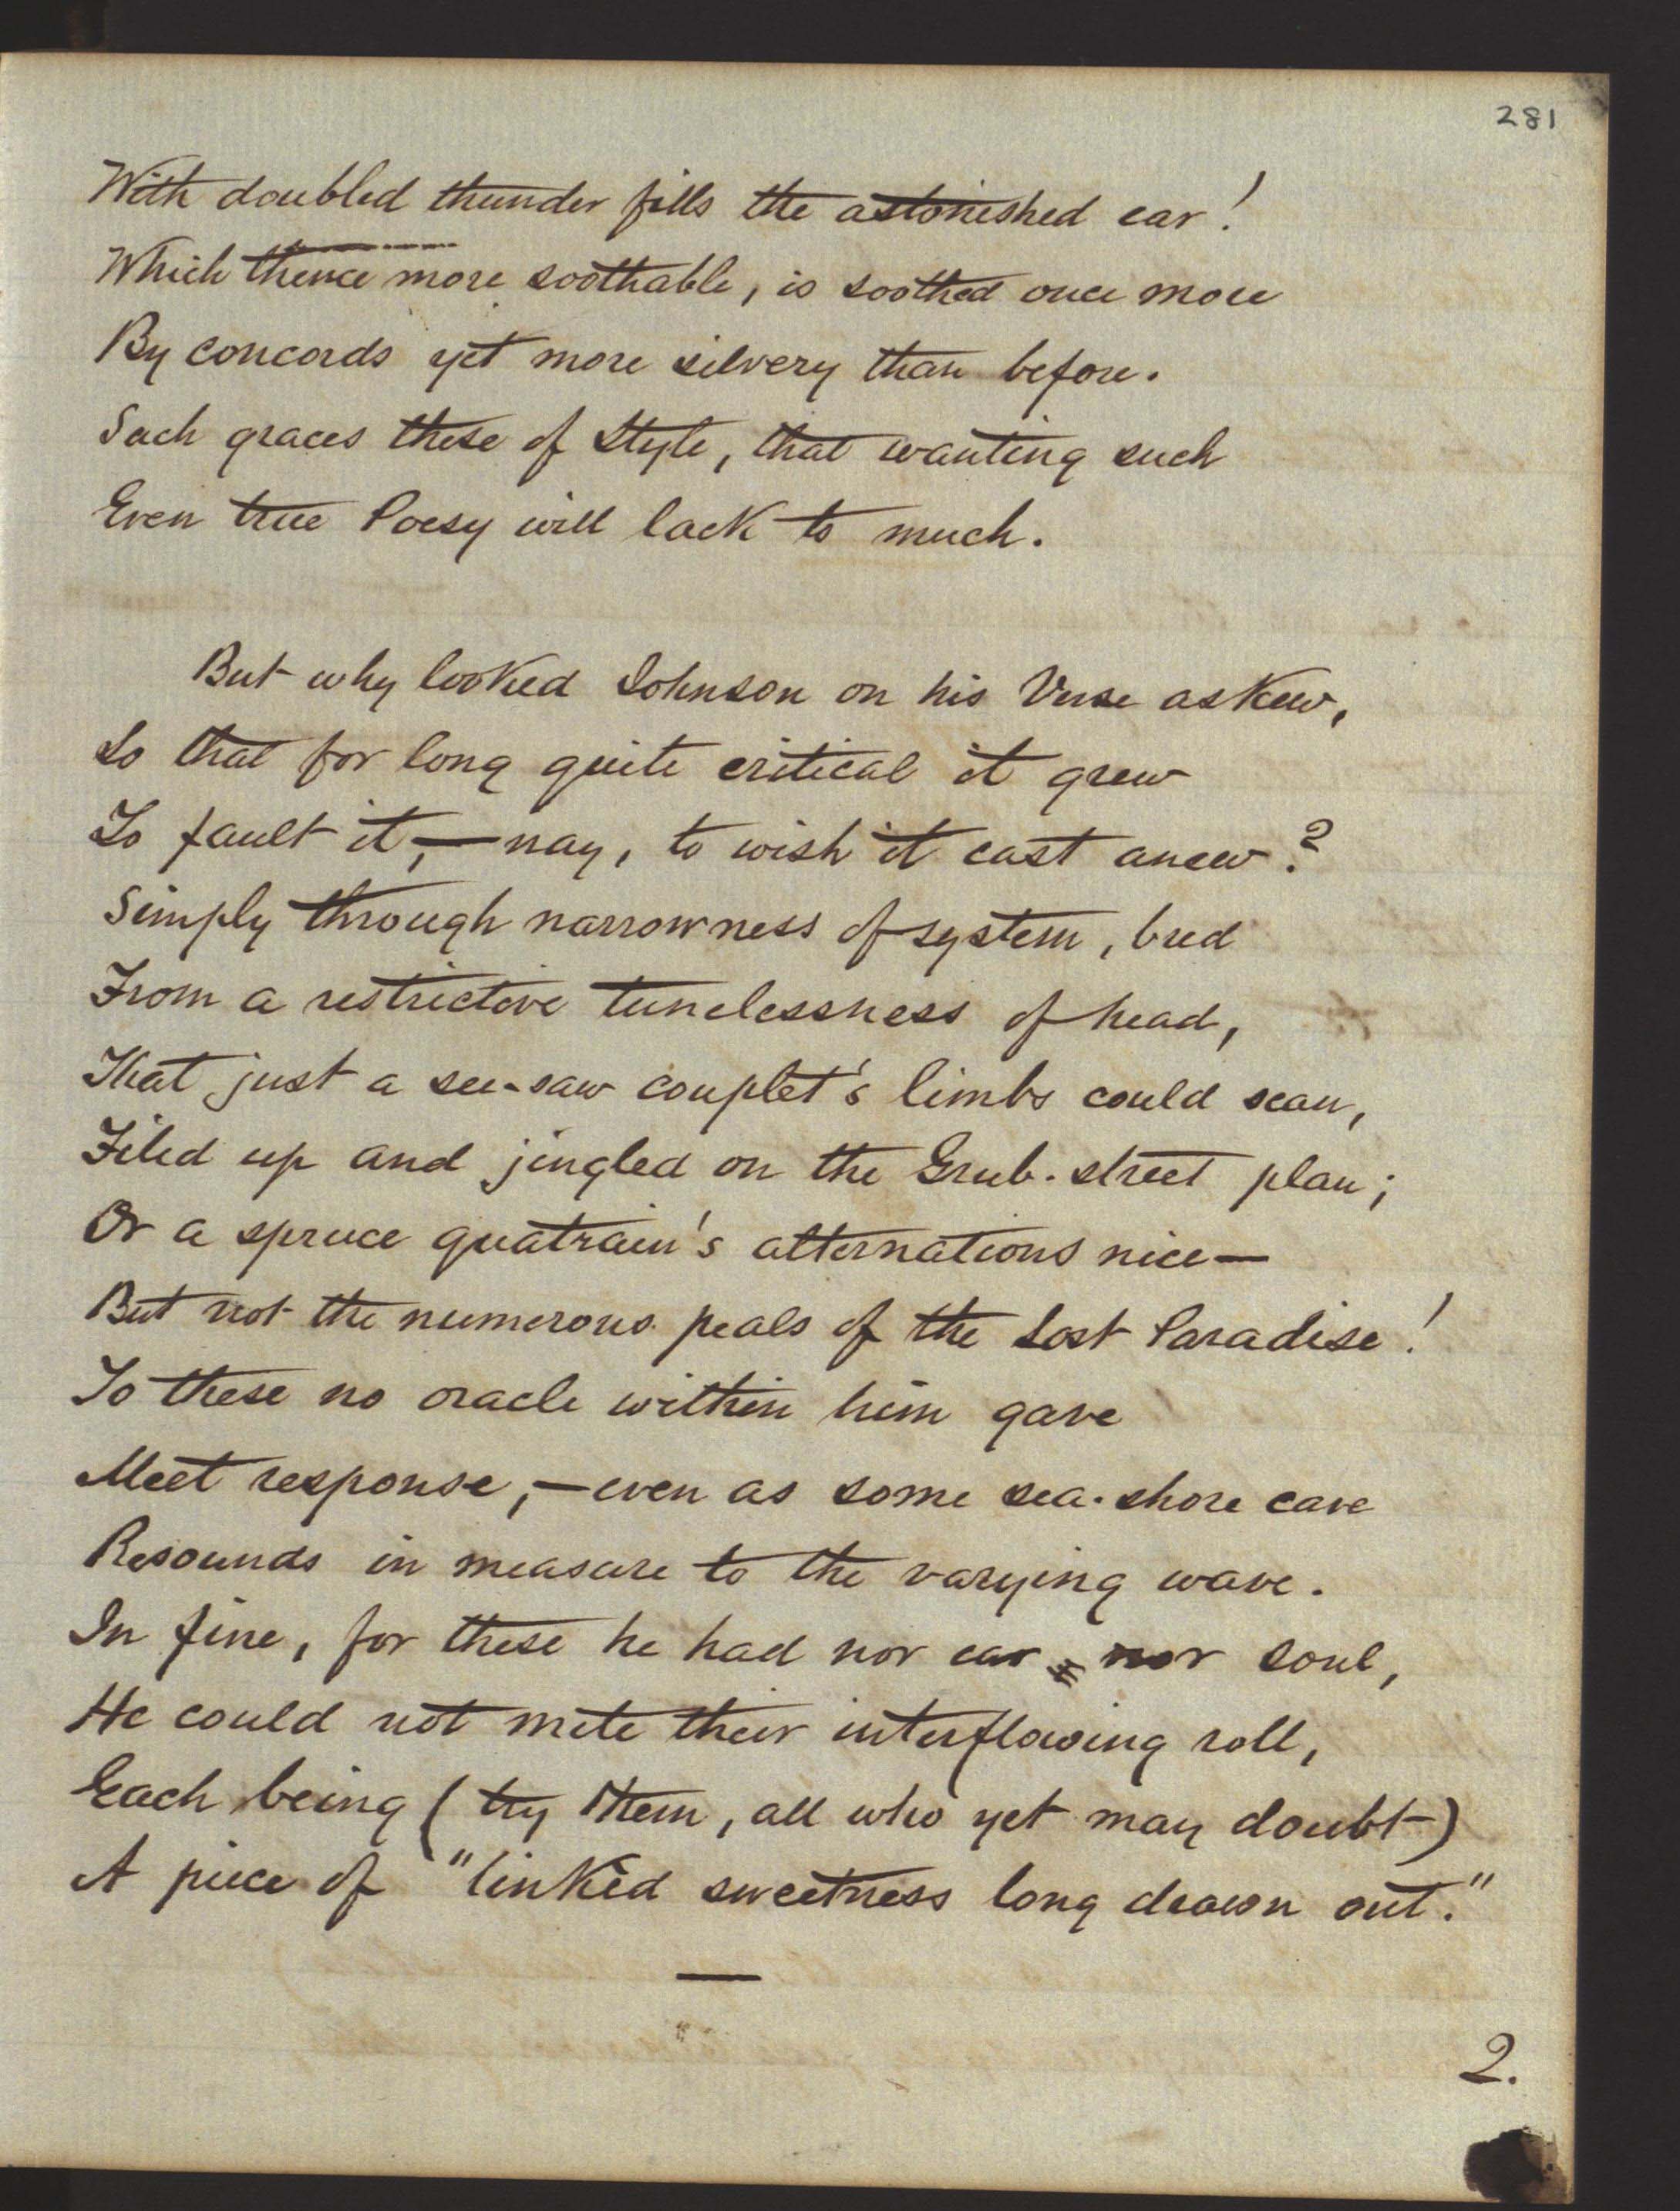 281
With doubled thunder fills the astonished ear!
Which thence more soothable, is soothed once more
By concords yet more silvery than before.
Such graces these of Style, that wanting such
Even true Poesy will lack to much.
But why looked Johnson on his Verse askew,
So that for long quite critical it grew
To fault it,—nay, to wish it cast anew?
Simply through narrowness of system, bred
From a restrictive tunelessness of head,
That just a see-saw couplet's limbs could scan,
Filed up and jingled on the Grub-street plan;
Or a spruce quatrain's alternations nice—
But not the numerous peals of the Lost Paradise!
To these no oracle within him gave
Meet response,—even as some sea-shore cave
Resounds in measure to the varying wave.
In fine, for these he had nor ear nor soul,
He could not mete their interflowing roll,
Each being (try them, all who yet may doubt)
A piece of "linkèd sweetness long drawn out."
2.